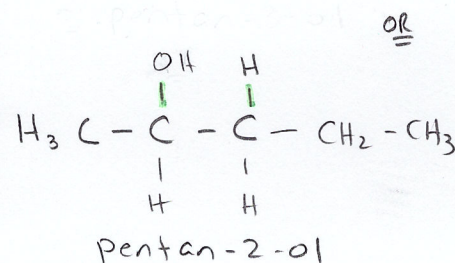 OR
OH H
H3C - C - C - CH2 - CH3
H H
pentan-2-ol